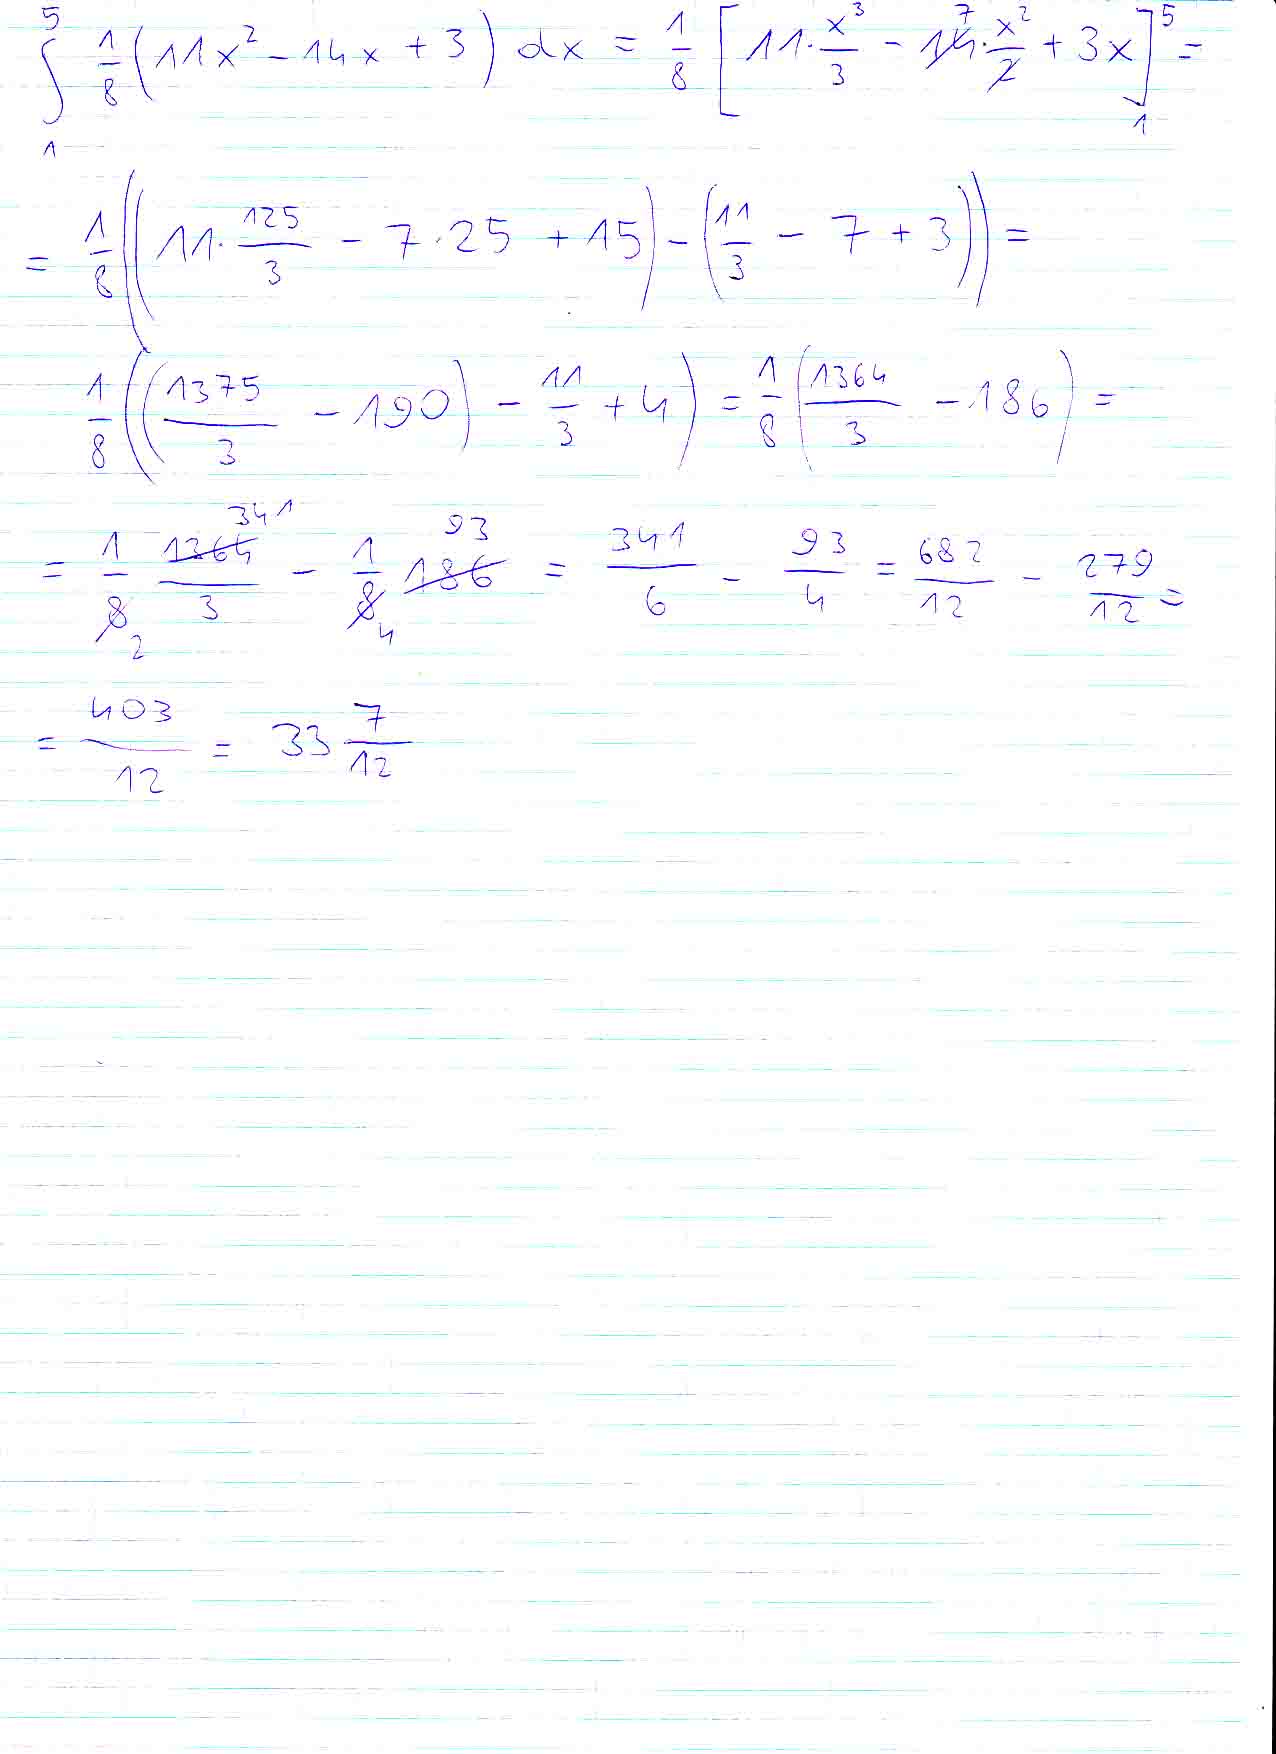 ∫₁⁵ 1/8 (11x² - 14x + 3) dx = 1/8 [11·x³/3 - 14·x²/2 + 3x]₁⁵ = 7
= 1/8 ((11·125/3 - 7·25 + 15) - (11/3 - 7 + 3)) =
1/8 ((1375/3 - 190) - 11/3 + 4) = 1/8 (1364/3 - 186) =
= 1/8 1364/3 - 1/8 186 = 341/6 - 93/4 = 682/12 - 279/12 = 341 2 93 4
= 403/12 = 33 7/12